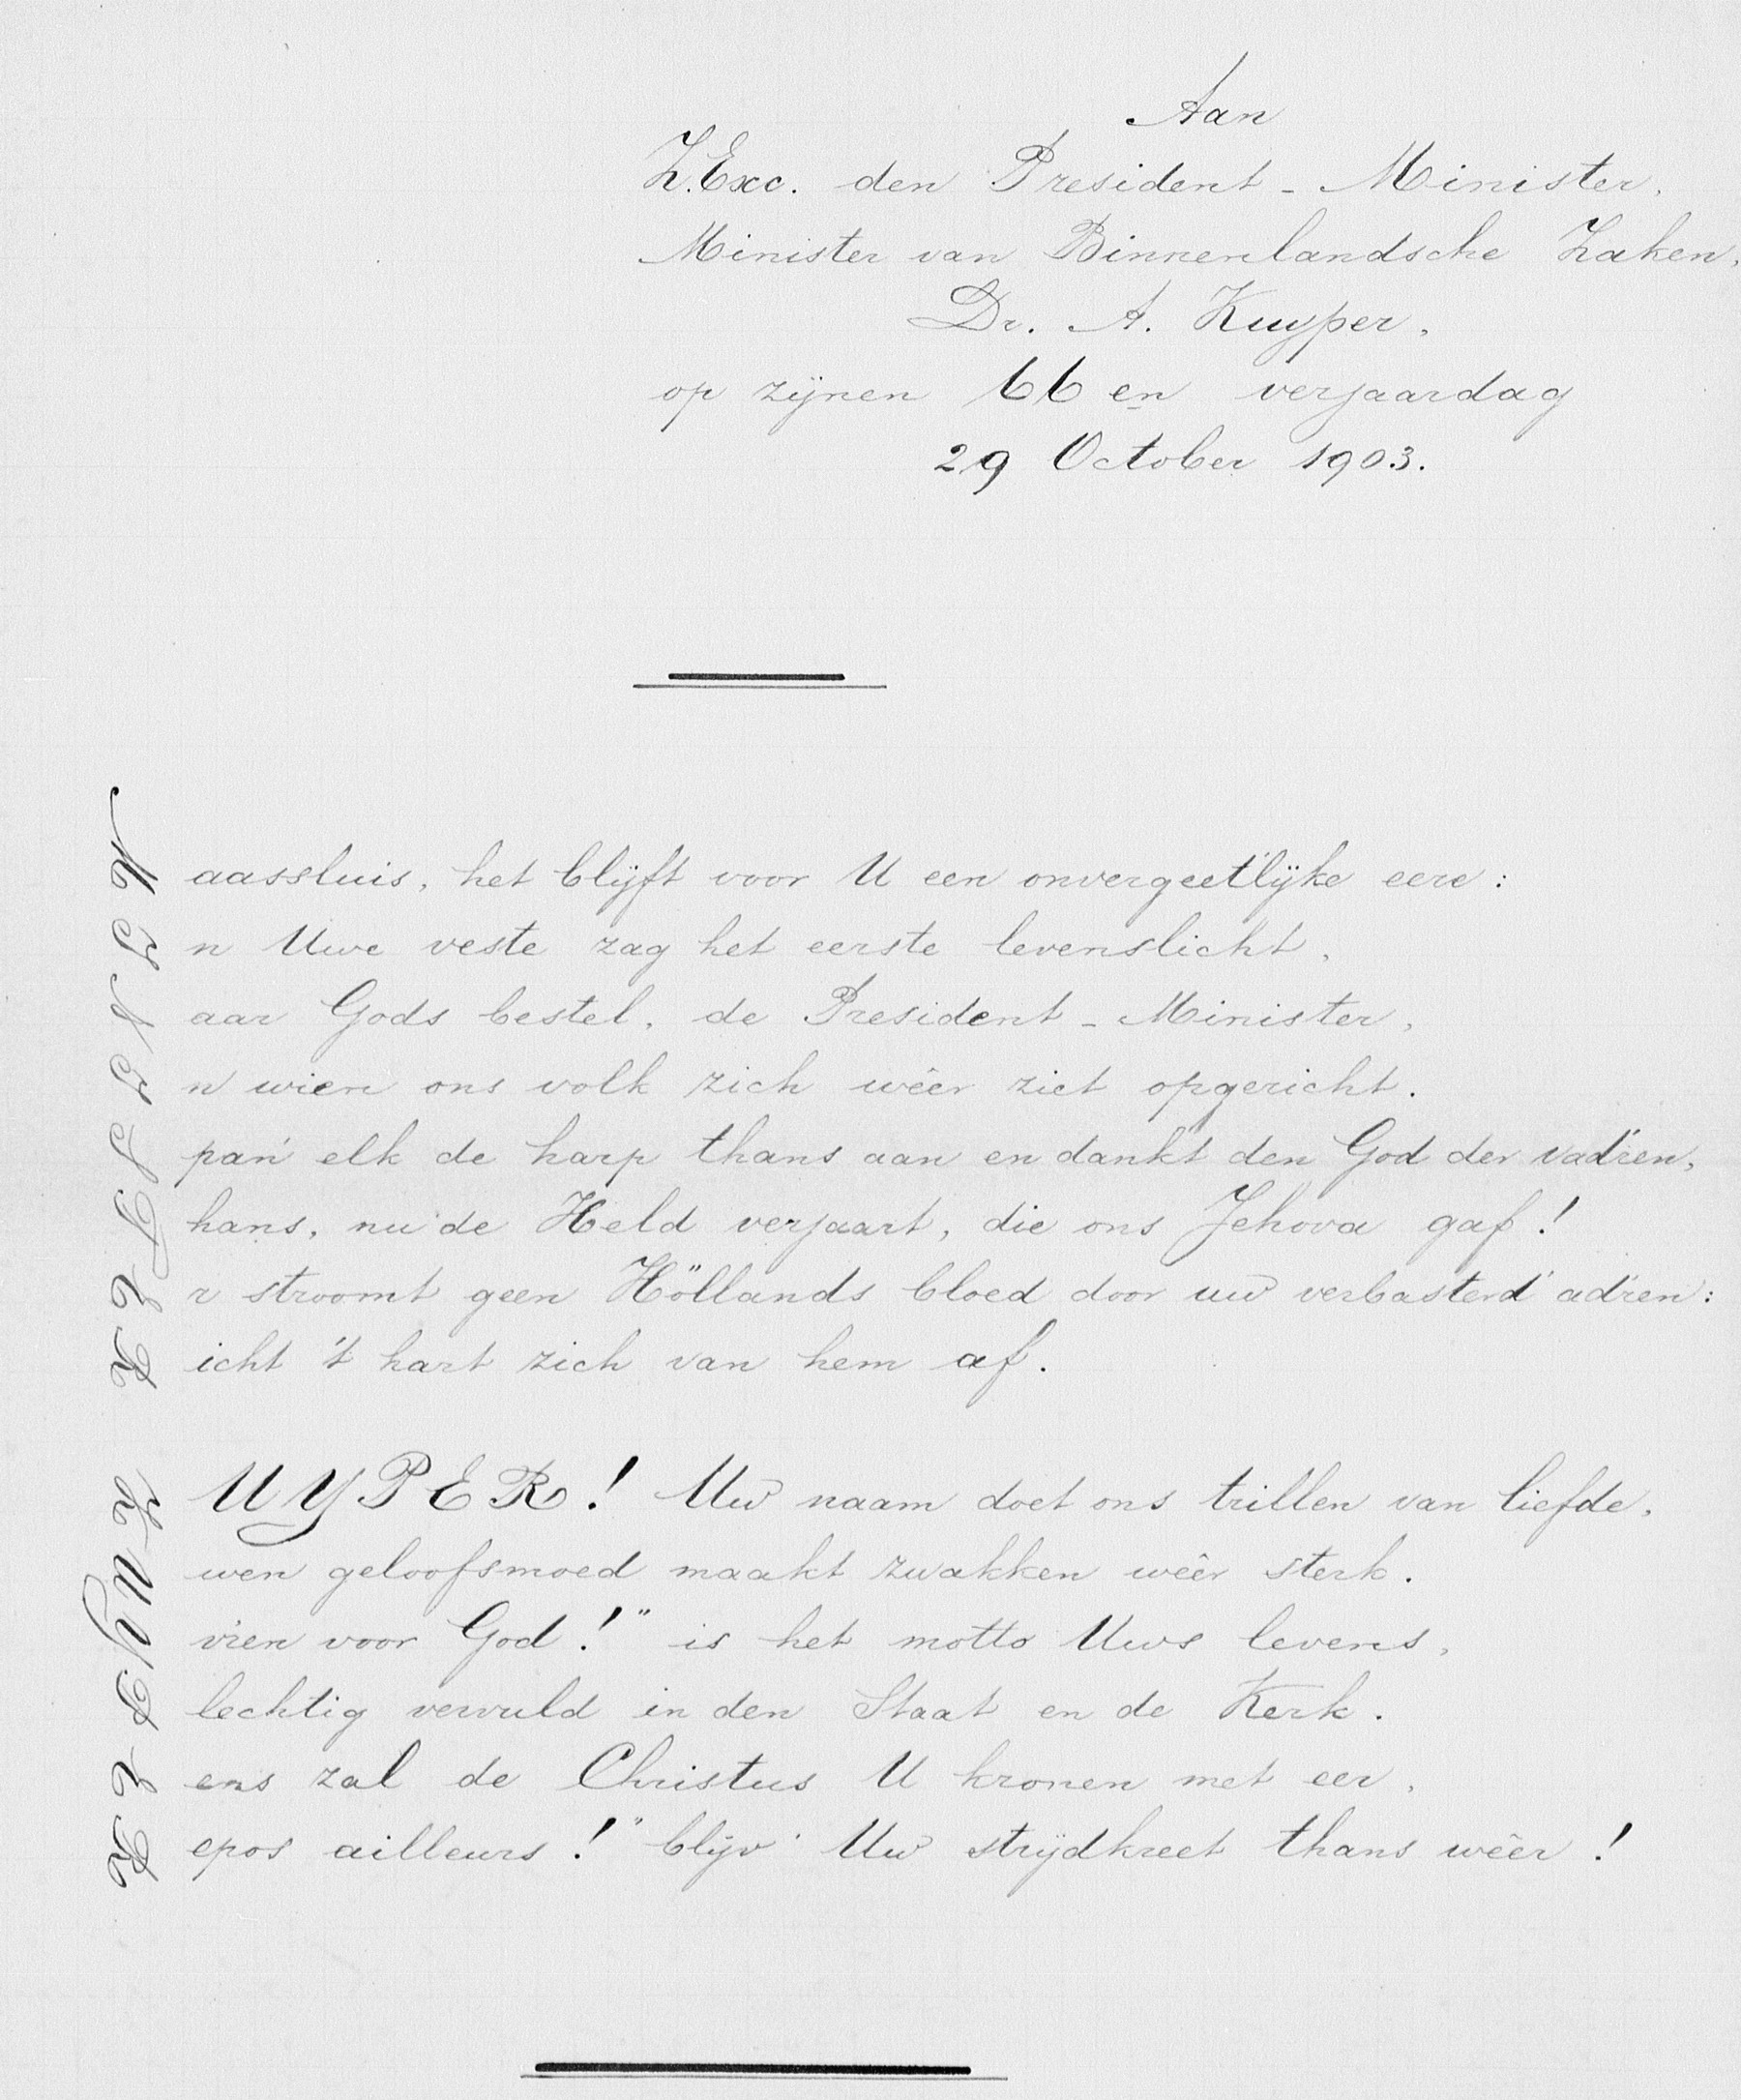 Aan
Z. Exc. den President-Minister,
Minister van Binnenlandsche Zaken,
Dr. A. Kuyper,
op zijnen 66en verjaardag
29 October 1903.
Maassluis, het blijft voor U een onvergeet'lijke eere:
In Uwe veste zag het eerste levenslicht,
Naar Gods bestel, de President-Minister,
In wien ons volk zich wêer ziet opgericht.
Span' elk de harp thans aan en dankt den God der vad'ren,
Thans, nu de Held verjaart, die ons Jehova gaf!
Er stroomt geen Hollands bloed door uw verbasterd' ad'ren:
Richt 't hart zich van hem af.
KUYPER! Uw naam doet ons trillen van liefde,
Uwen geloofsmoed maakt zwakken wêer sterk.
Yv'ren voor God!" is het motto Uws levens,
Plechtig vervuld in den Staat en de Kerk.
Eens zal de Christus U kronen met eer,
Repos ailleurs!" blijv' Uw strijdkreet thans wêer!